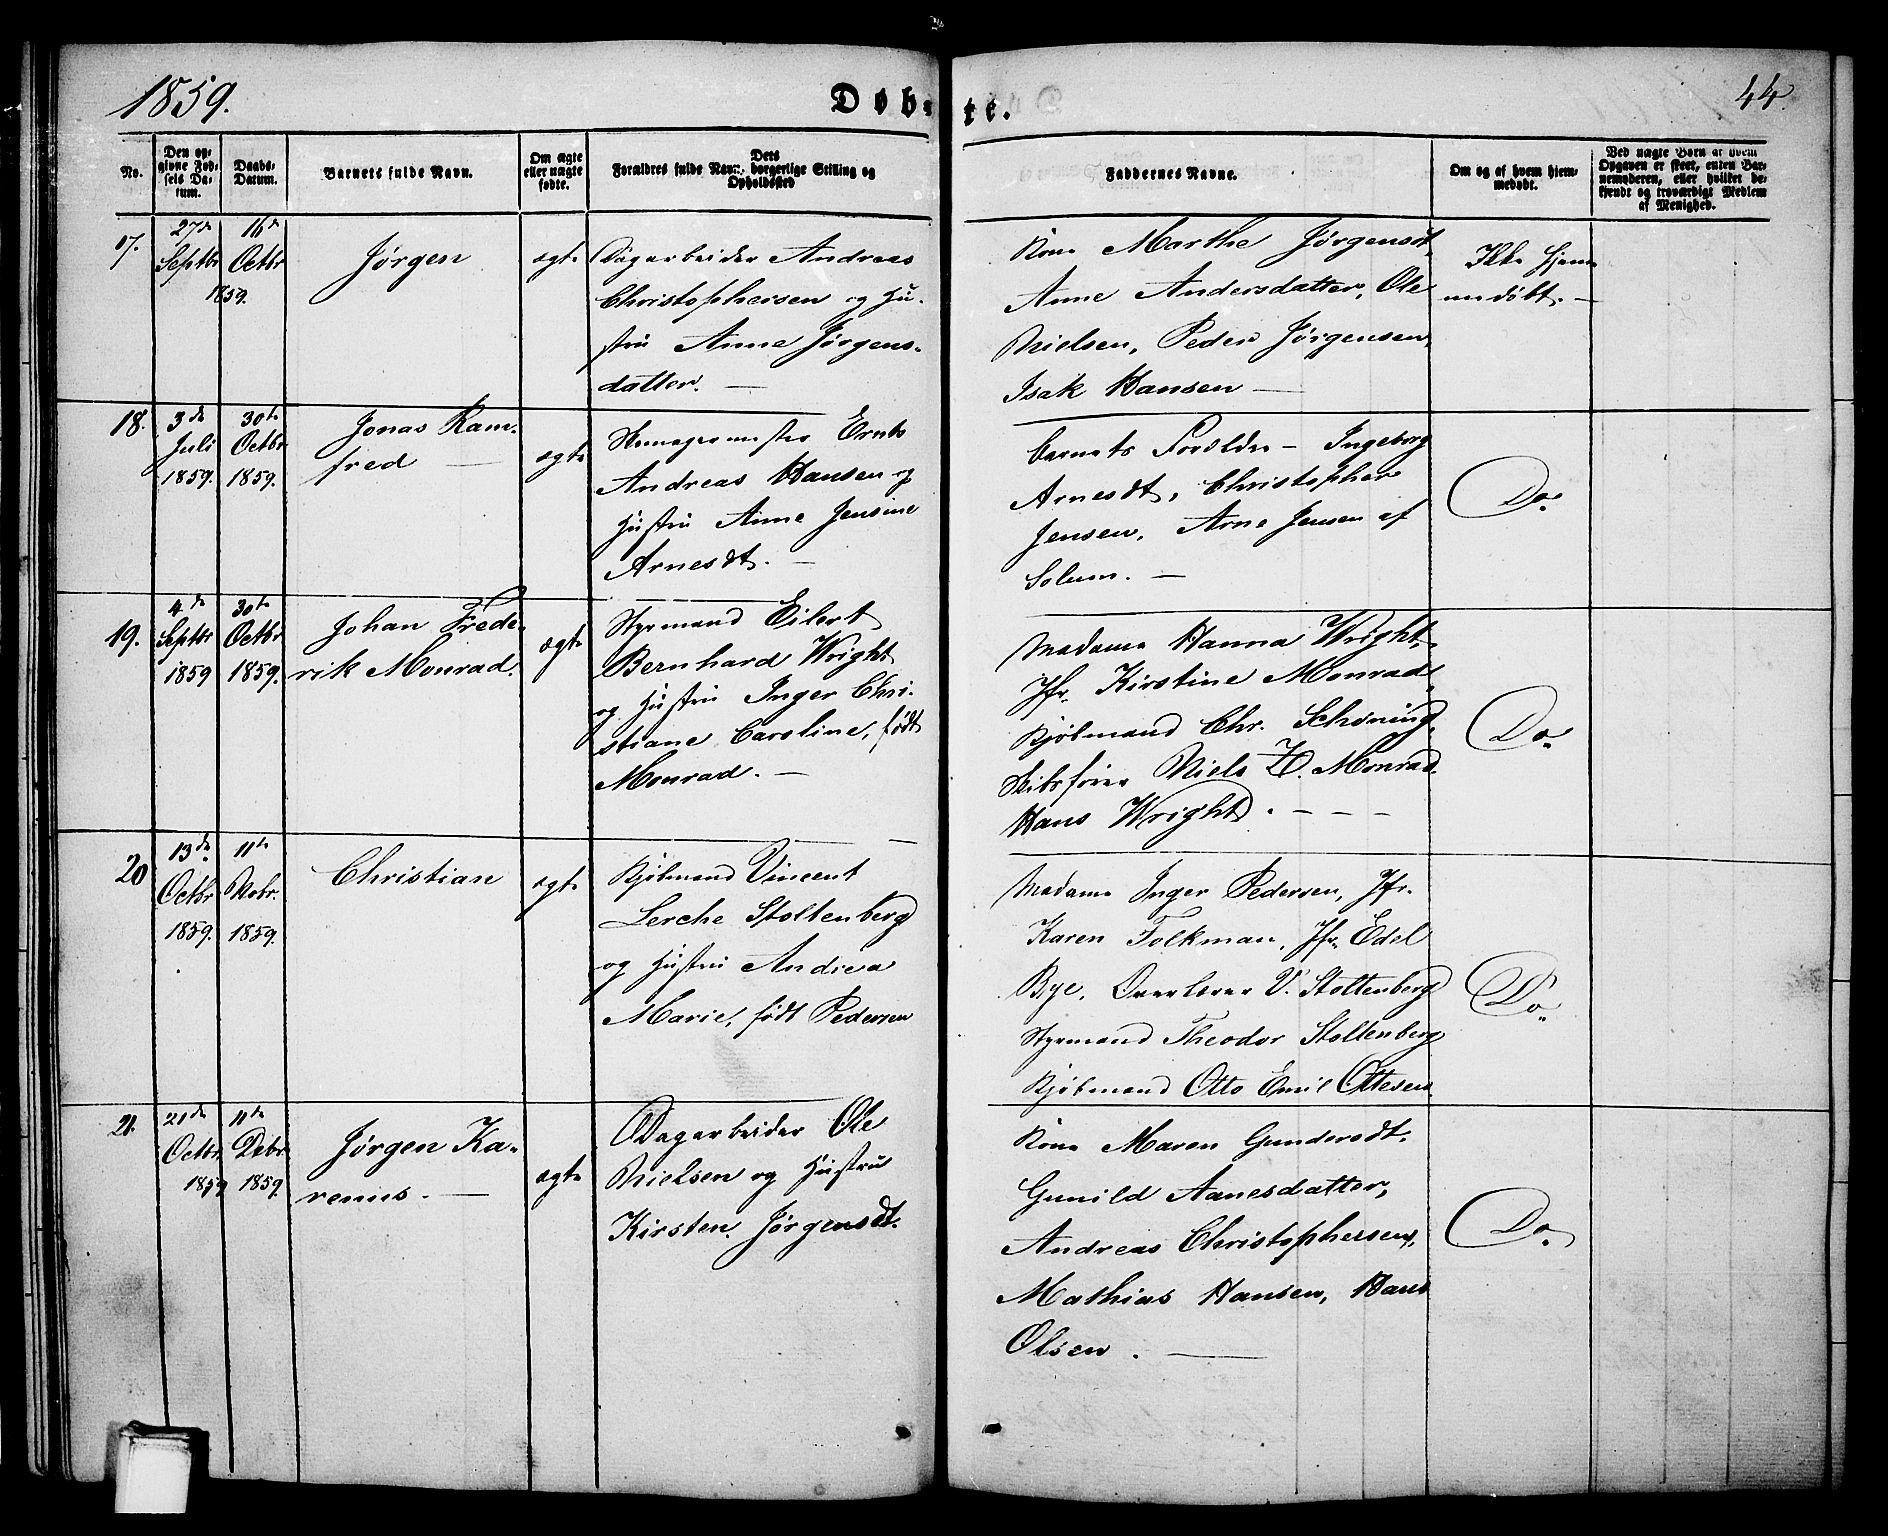 1859.
Døb-
te.
44.
No.
Den op-
givne Fød-
sels Da-
tum.
Daabs-
Datum.
Barnets fulde Navn.
Om ægte
eller uægte
fødte.
Dets
Forældres fulde Navn, borgerlige Stilling og
Opholdssted
Faddernes Navne.
Om og af hvem hjem-
medøbt.
Ved uægte Børn af hvem
Opgaven er skeet, enten Bar-
nemoderen, eller hvilket be-
kjendt og troværdigt Medlem
af Menighed.
17.
27de
Septbr
16de
Octbr
1859.
Jørgen
ægte
Dagarbeider Andreas
Christophersen og Hu-
stru Anne Jørgens-
datter. —
Kone Marthe Jørgensdt,
Anne Andersdatter, Ole
Nielsen, Peder Jørgensen,
Isak Hansen —
Ikke hjem-
medøbt. —
18.
3de
Juli
1859.
30te
Octbr
1859.
Jonas Ram-
fred —
ægte
Andreas Hansen og
Hustru Anne Jensine
Arnesdt. —
Barnets Forældre — Ingeborg
Arnesdt, Christopher
Jensen, Arne Jensen af
Solum. —
Do.
19.
4de
Septbr
1859
30te
Octbr
1859.
Johan Frede-
rik Monrad.
ægte
Styrmand Eilert
Bernhard Wright
og Hustru Inger Chri-
stiane Caroline, født
Monrad. —
Madame Hanna Wright,
Jfr. Kirstine Monrad,
Kjøbmand Chr. Schøning,
Skibsfører Niels H. Monrad,
Hans Wright. — — —
Do.
20
13de
Octbr
1859.
11te
Decbr.
1859.
Christian
ægte
Kjøbmand Vincent
Lerche Stoltenberg
og Hustru Andrea
Marie, født Pedersen
Madame Inger Pedersen, Jfr.
Karen Folkman, Jfr. Edel
Bye, Overlærer V. Stoltenberg
Styrmand Theodor Stoltenberg
Kjøbmand Otto Emil Ottesen
Do.
21.
21de
Octbr
1859
11te
Debr
1859.
Jørgen Ka-
renius. —
ægte
Dagarbeider Ole
Nielsen og Hustru
Kirsten Jørgensdt.
Kone Maren Gundersdt.
Gunild Aanesdatter,
Andreas Christophersen,
Mathias Hansen, Hans
Olsen. —
Do.